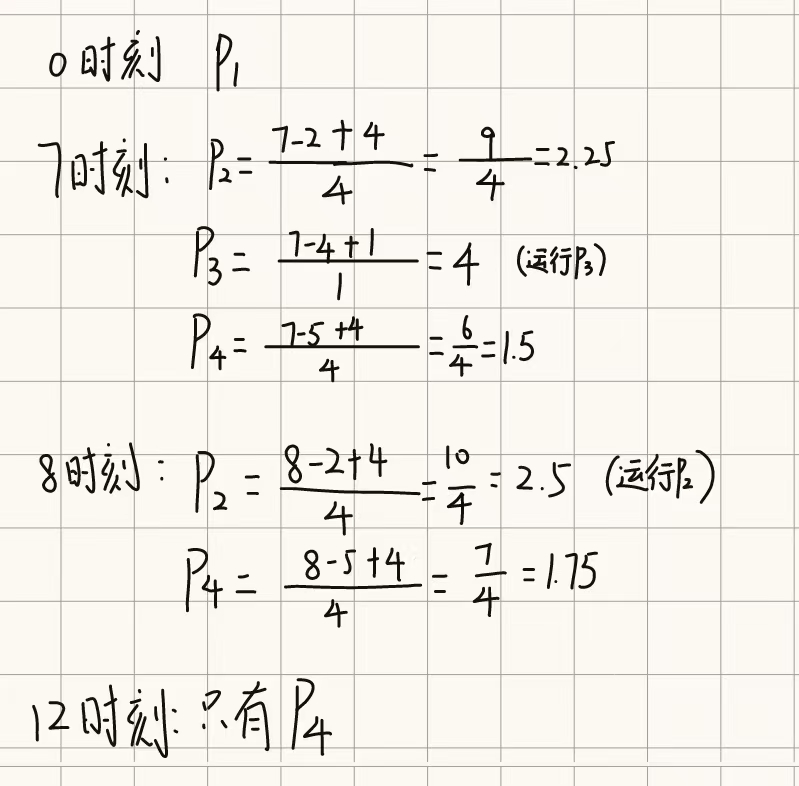 0时刻 P₁
7时刻: P₂ = (7-2+4)/4 = 9/4 = 2.25
P₃ = (7-4+1)/1 = 4 (运行P₃)
P₄ = (7-5+4)/4 = 6/4 = 1.5
8时刻: P₂ = (8-2+4)/4 = 10/4 = 2.5 (运行P₂)
P₄ = (8-5+4)/4 = 7/4 = 1.75
12时刻: 只有P₄